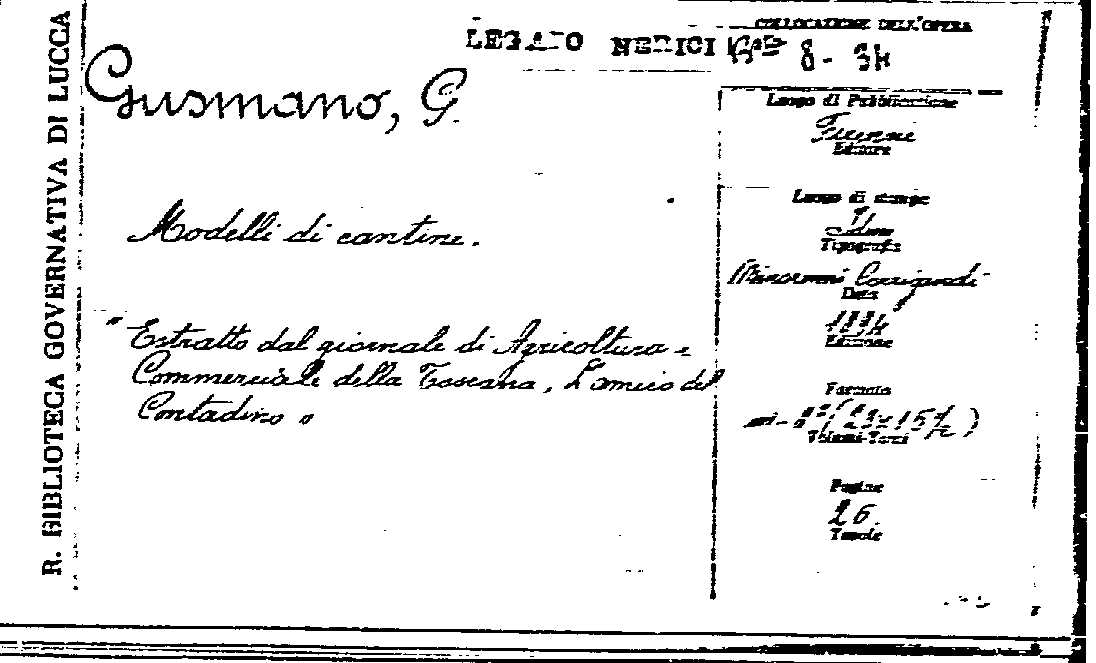 R. BIBLIOTECA GOVERNATIVA DI LUCCA
COLLOCAZIONE DELL'OPERA
LEGATO NERICI
8-34
Gusmano, G.
Luogo di Pubblicazione
Firenze
Editore
Luogo di stampa
Tipografia
Modelli di cantine.
Data
Edizione
"Estratto dal giornale di Agricoltura e
Commerciale della Toscana, L'amico del
Contadino"
Formato
in-8° (23x15½)
Volumi-Tomi
Pagine
26.
Tavole